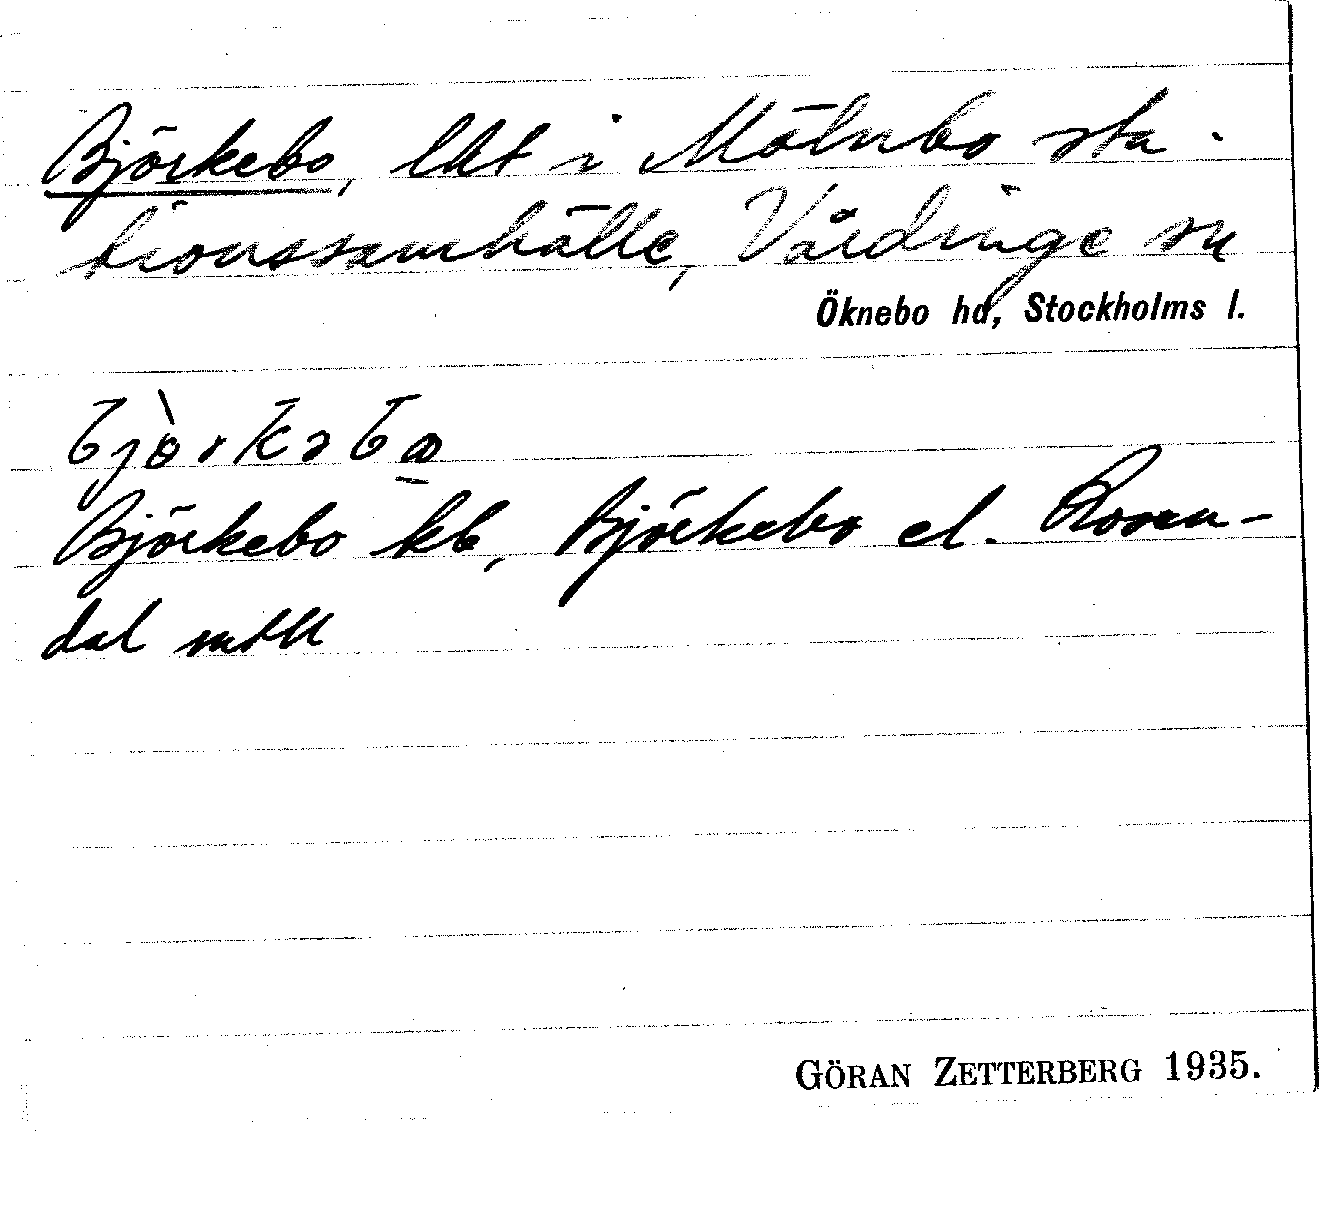 Björkebo, lht i Mölnbo sta-
tionssamhälle, Vårdinge sn
Öknebo hd, Stockholms l.
Björkebo kb, Björkebo el. Rosen-
dal mtll
GÖRAN ZETTERBERG 1935.